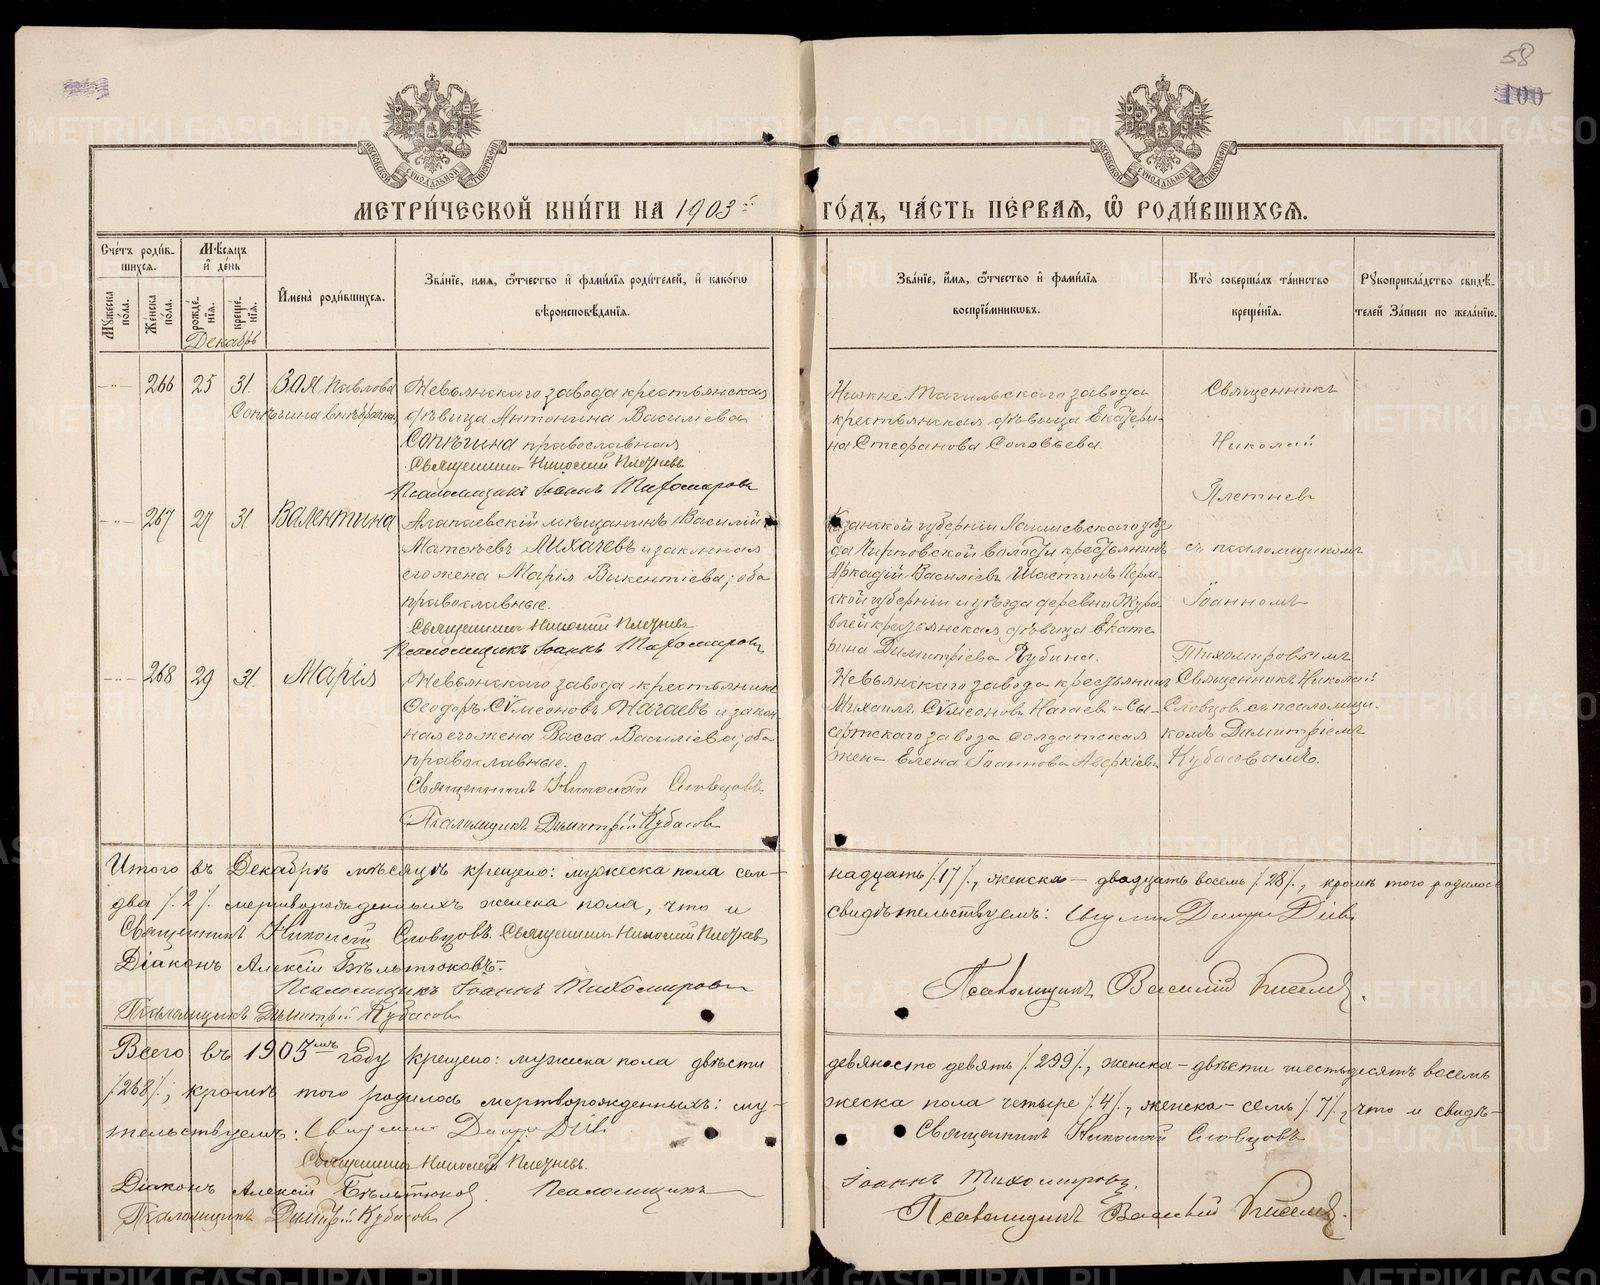 58
100
МЕТРИЧЕСКОЙ КНИГИ НА 1903й ГОДЪ, ЧАСТЬ ПЕРВАЯ, Ѡ РОДИВШИХСЯ.
Счетъ родившихся.
Мужеска пола.
Женска пола.
Мѣсяцъ и день
рожденія.
крещенія.
Декабрь
Имена родившихся.
Званіе, имя, ѿчество и фамилія родителей, и какогѡ вѣроисповѣданія.
Званіе, имя, ѿчество и фамилія воспріемниковъ.
Кто совершалъ таинство крещенія.
Рукоприкладство свидѣтелей записи по желанію.
266 25 31 Зоя Павлова
Сопѣгина внѣбрачная
Невьянскаго завода крестьянская
дѣвица Антонина Василіева
Сопѣгина православная
Священникъ Николай Плетневъ
Псаломщикъ Іоаннъ Тихомировъ
Нижне-Тагильскаго завода
крестьянская дѣвица Екатери-
на Стефанова Соловьева.
Священникъ
Николай
Плетневъ
267 27 31 Валентина
Алапаевскій мѣщанинъ Василій
Матѳеевъ Лихачевъ и законная
его жена Марія Викентіева; оба
православные.
Священникъ Николай Плетневъ
Псаломщикъ Іоаннъ Тихомировъ
Казанской губерніи Лаишевскаго уѣз
да волости крестьянинъ
Аркадій Василіевъ Шастинъ Перм-
ской губерніи и уѣзда деревни Жура-
влей крестьянская дѣвица Екате-
рина Димитріева Чубина.
съ псаломщикомъ
Іоанномъ
Тихомировымъ
268 29 31 Марія
Невьянскаго завода крестьянинъ
Ѳеодоръ Сѵмеоновъ Нагаевъ и закон
ная его жена Васса Василіева; оба
православные.
Священникъ Николай Словцовъ
Псаломщикъ Димитрій Кубасовъ
Невьянскаго завода крестьянинъ
Михаилъ Сѵмеоновъ Нагаевъ и Сы-
сертскаго завода солдатская
жена Елена Іоаннова Аверкіева
Священникъ Николай
Словцовъ съ псаломщи-
комъ Димитріемъ
Кубасовымъ.
Итого въ Декабрѣ мѣсяцѣ крещено: мужеска пола сем-
надцать /.17/., женска – двадцать восемь /.28/., кромѣ того родилось
два /.2/. мертворожденныхъ женска пола, что и
свидѣтельствуемъ: Священ Димит Діевъ
Священникъ Николай Словцовъ. Священникъ Николай Плетневъ
Діаконъ Алексій Бѣльтюковъ.
Псаломщикъ Іоаннъ Тихомировъ
Псаломщикъ Василій Киселевъ.
Псаломщикъ Димитрій Кубасовъ
Всего въ 1903мъ году крещено: мужеска пола двѣсти
девяносто девять /.299/., женска – двѣсти шестьдесятъ восемь
/.268/., кромѣ того родилось мертворожденныхъ: му-
жеска пола четыре /.4/., женска – семь /.7/., что и свидѣ-
тельствуемъ: Священ Димит Діевъ
Священникъ Николай Словцовъ
Священникъ Николай Плетневъ.
Діаконъ Алексій Бѣльтюковъ. Псаломщикъ
Іоаннъ Тихомировъ.
Псаломщикъ Димитрій Кубасовъ
Псаломщикъ Василій Киселевъ.
METRIKI.GASO-URAL.RU